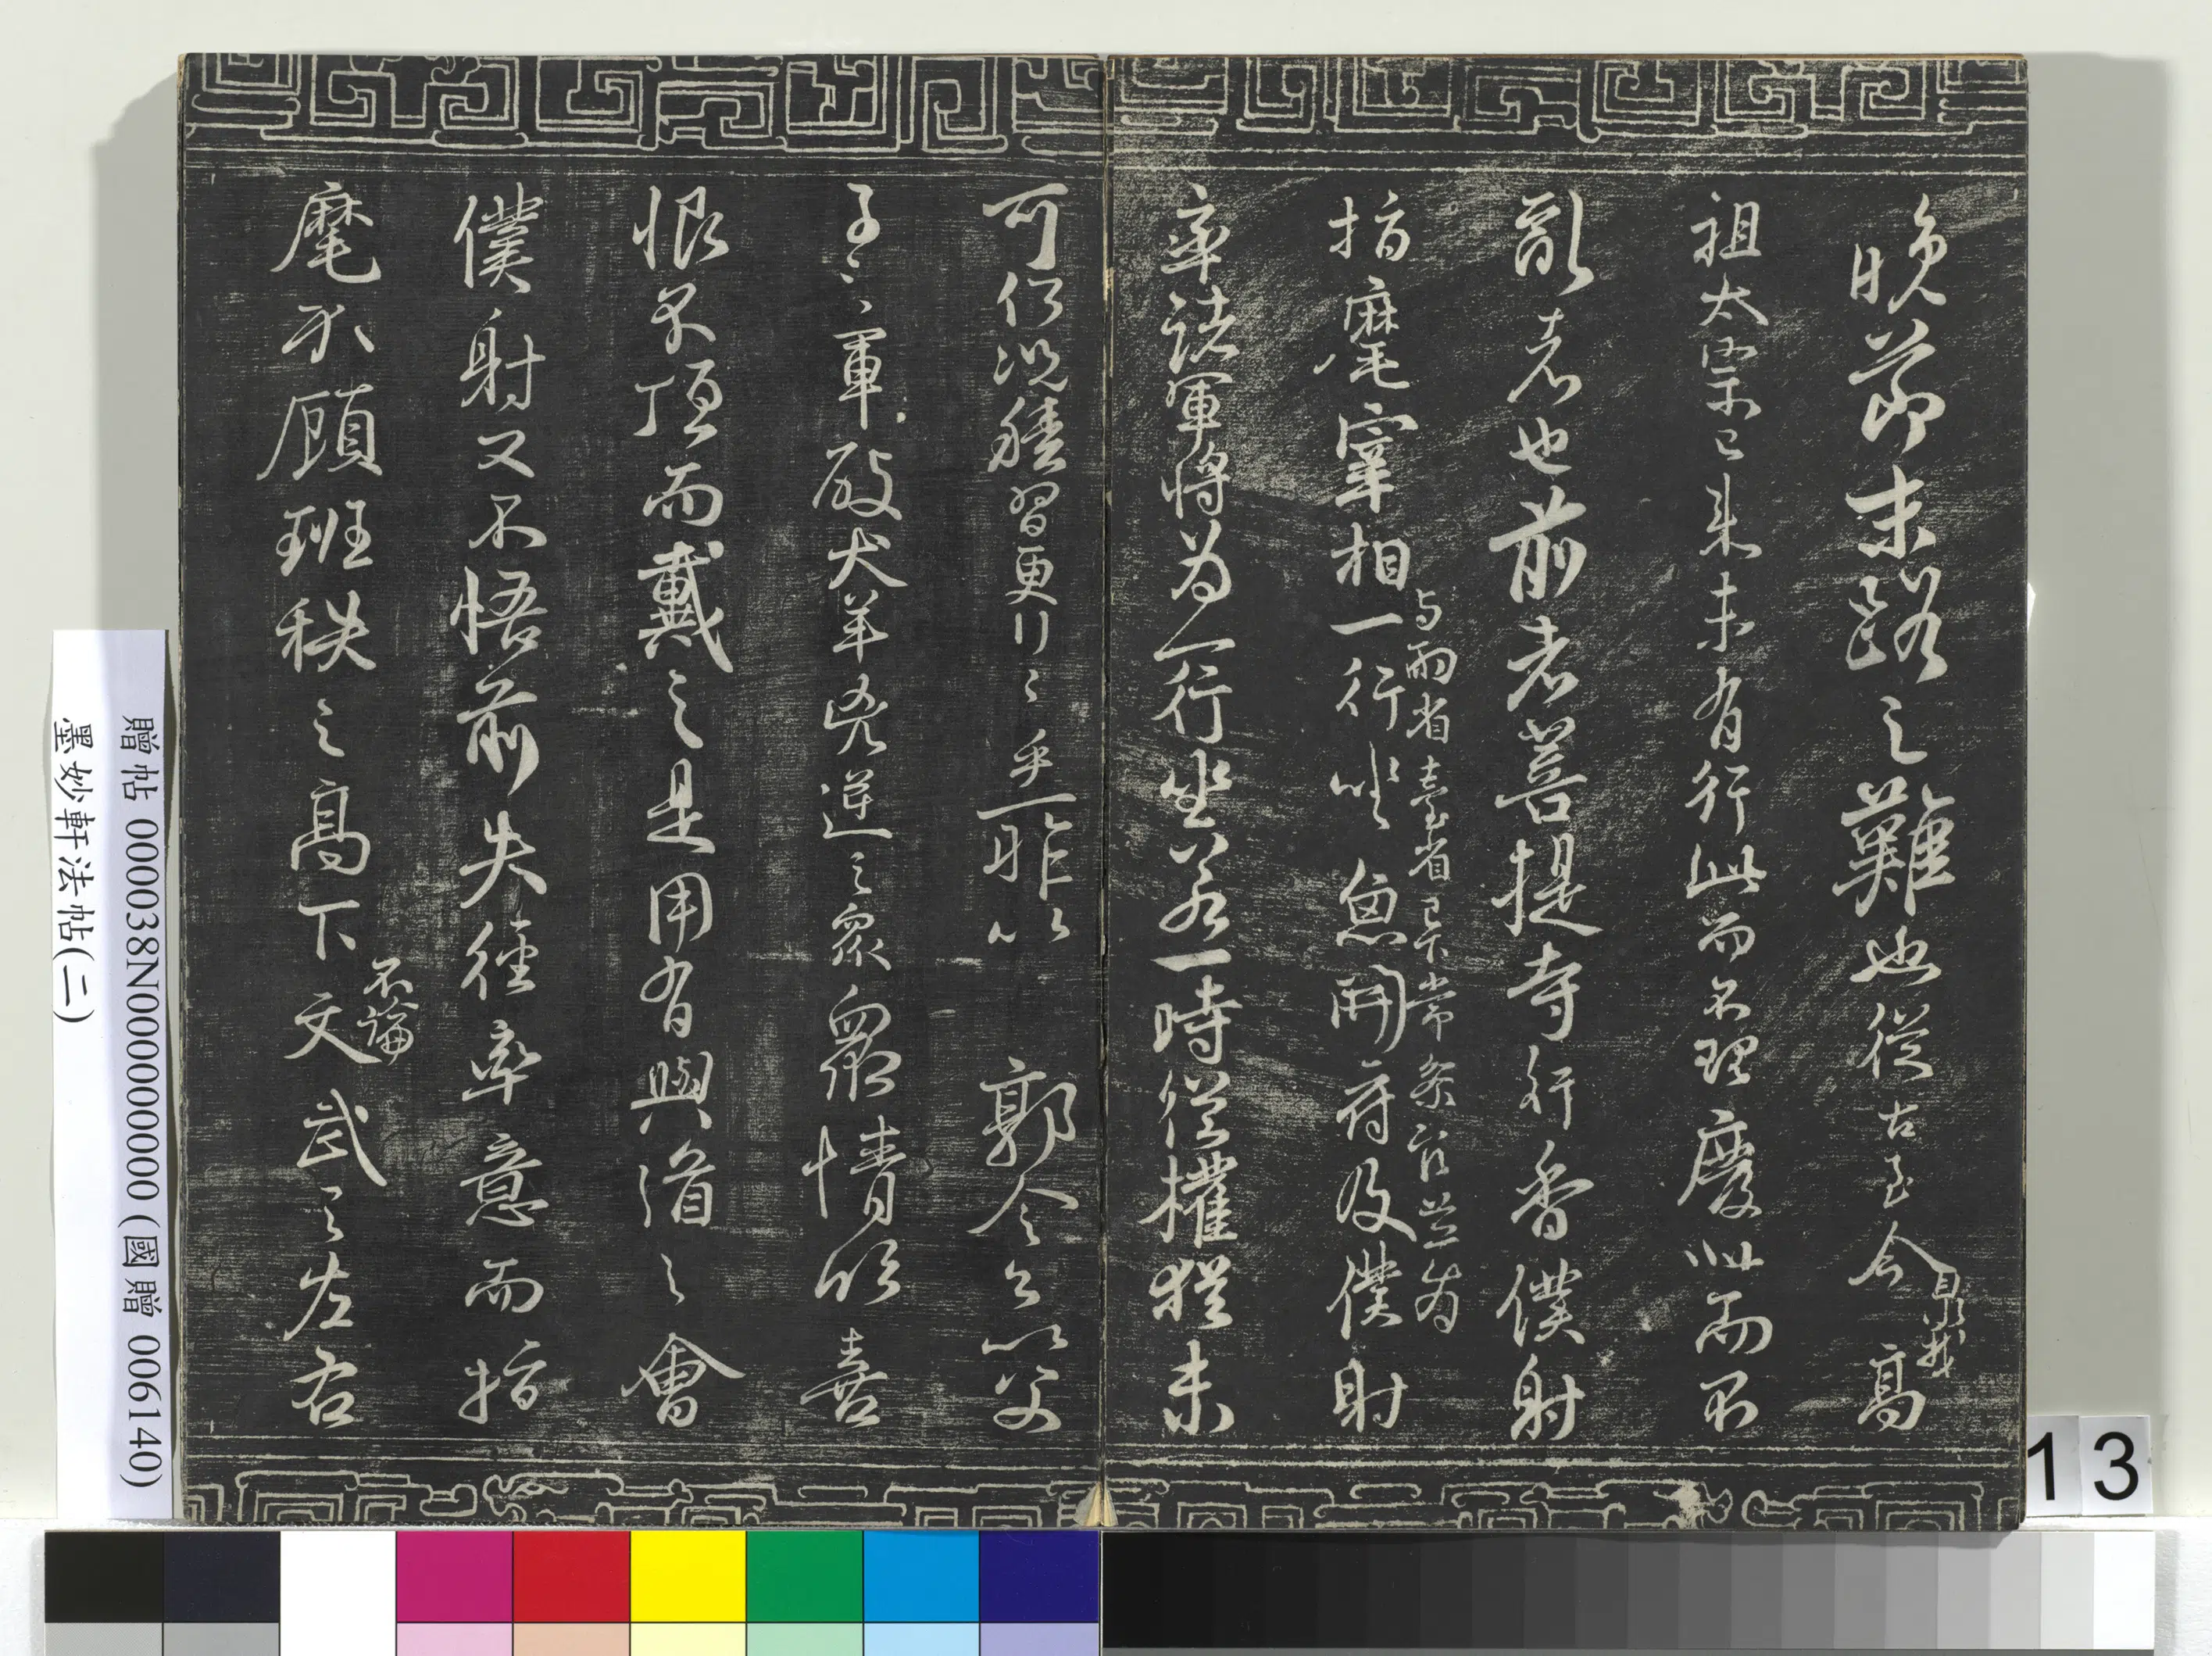 晚節末路之難也從古至今臮我高
祖太宗已來未有行此而不理廢此而不
亂者也前者菩提寺行香僕射
指麾宰相一行坐魚開府及僕射
与兩省臺省已下常參官並為
率諸軍將為一行坐若一時從權猶未
可何況積習更行之乎一昨以 郭令公以父
子之軍破犬羊兇逆之眾眾情欣喜
恨不頂而戴之是用有興道之會
僕射又不悟前失徑率意而指
麾不顧班秩之高下不論文武之左右
贈帖 000038N000000000000 (國贈 006140)
墨妙軒法帖(二)
13